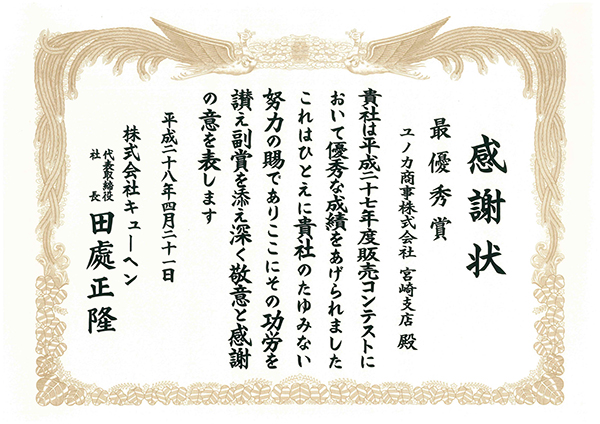 感謝状
最優秀賞
ユノカ商事株式会社 宮崎支店 殿
貴社は平成二十七年度販売コンテストに
おいて優秀な成績をあげられました
これはひとえに貴社のたゆみない
努力の賜でありここにその功労を
讃え副賞を添え深く敬意と感謝
の意を表します
平成二十八年四月二十一日
株式会社キューヘン
代表取締役
社長 田處正隆